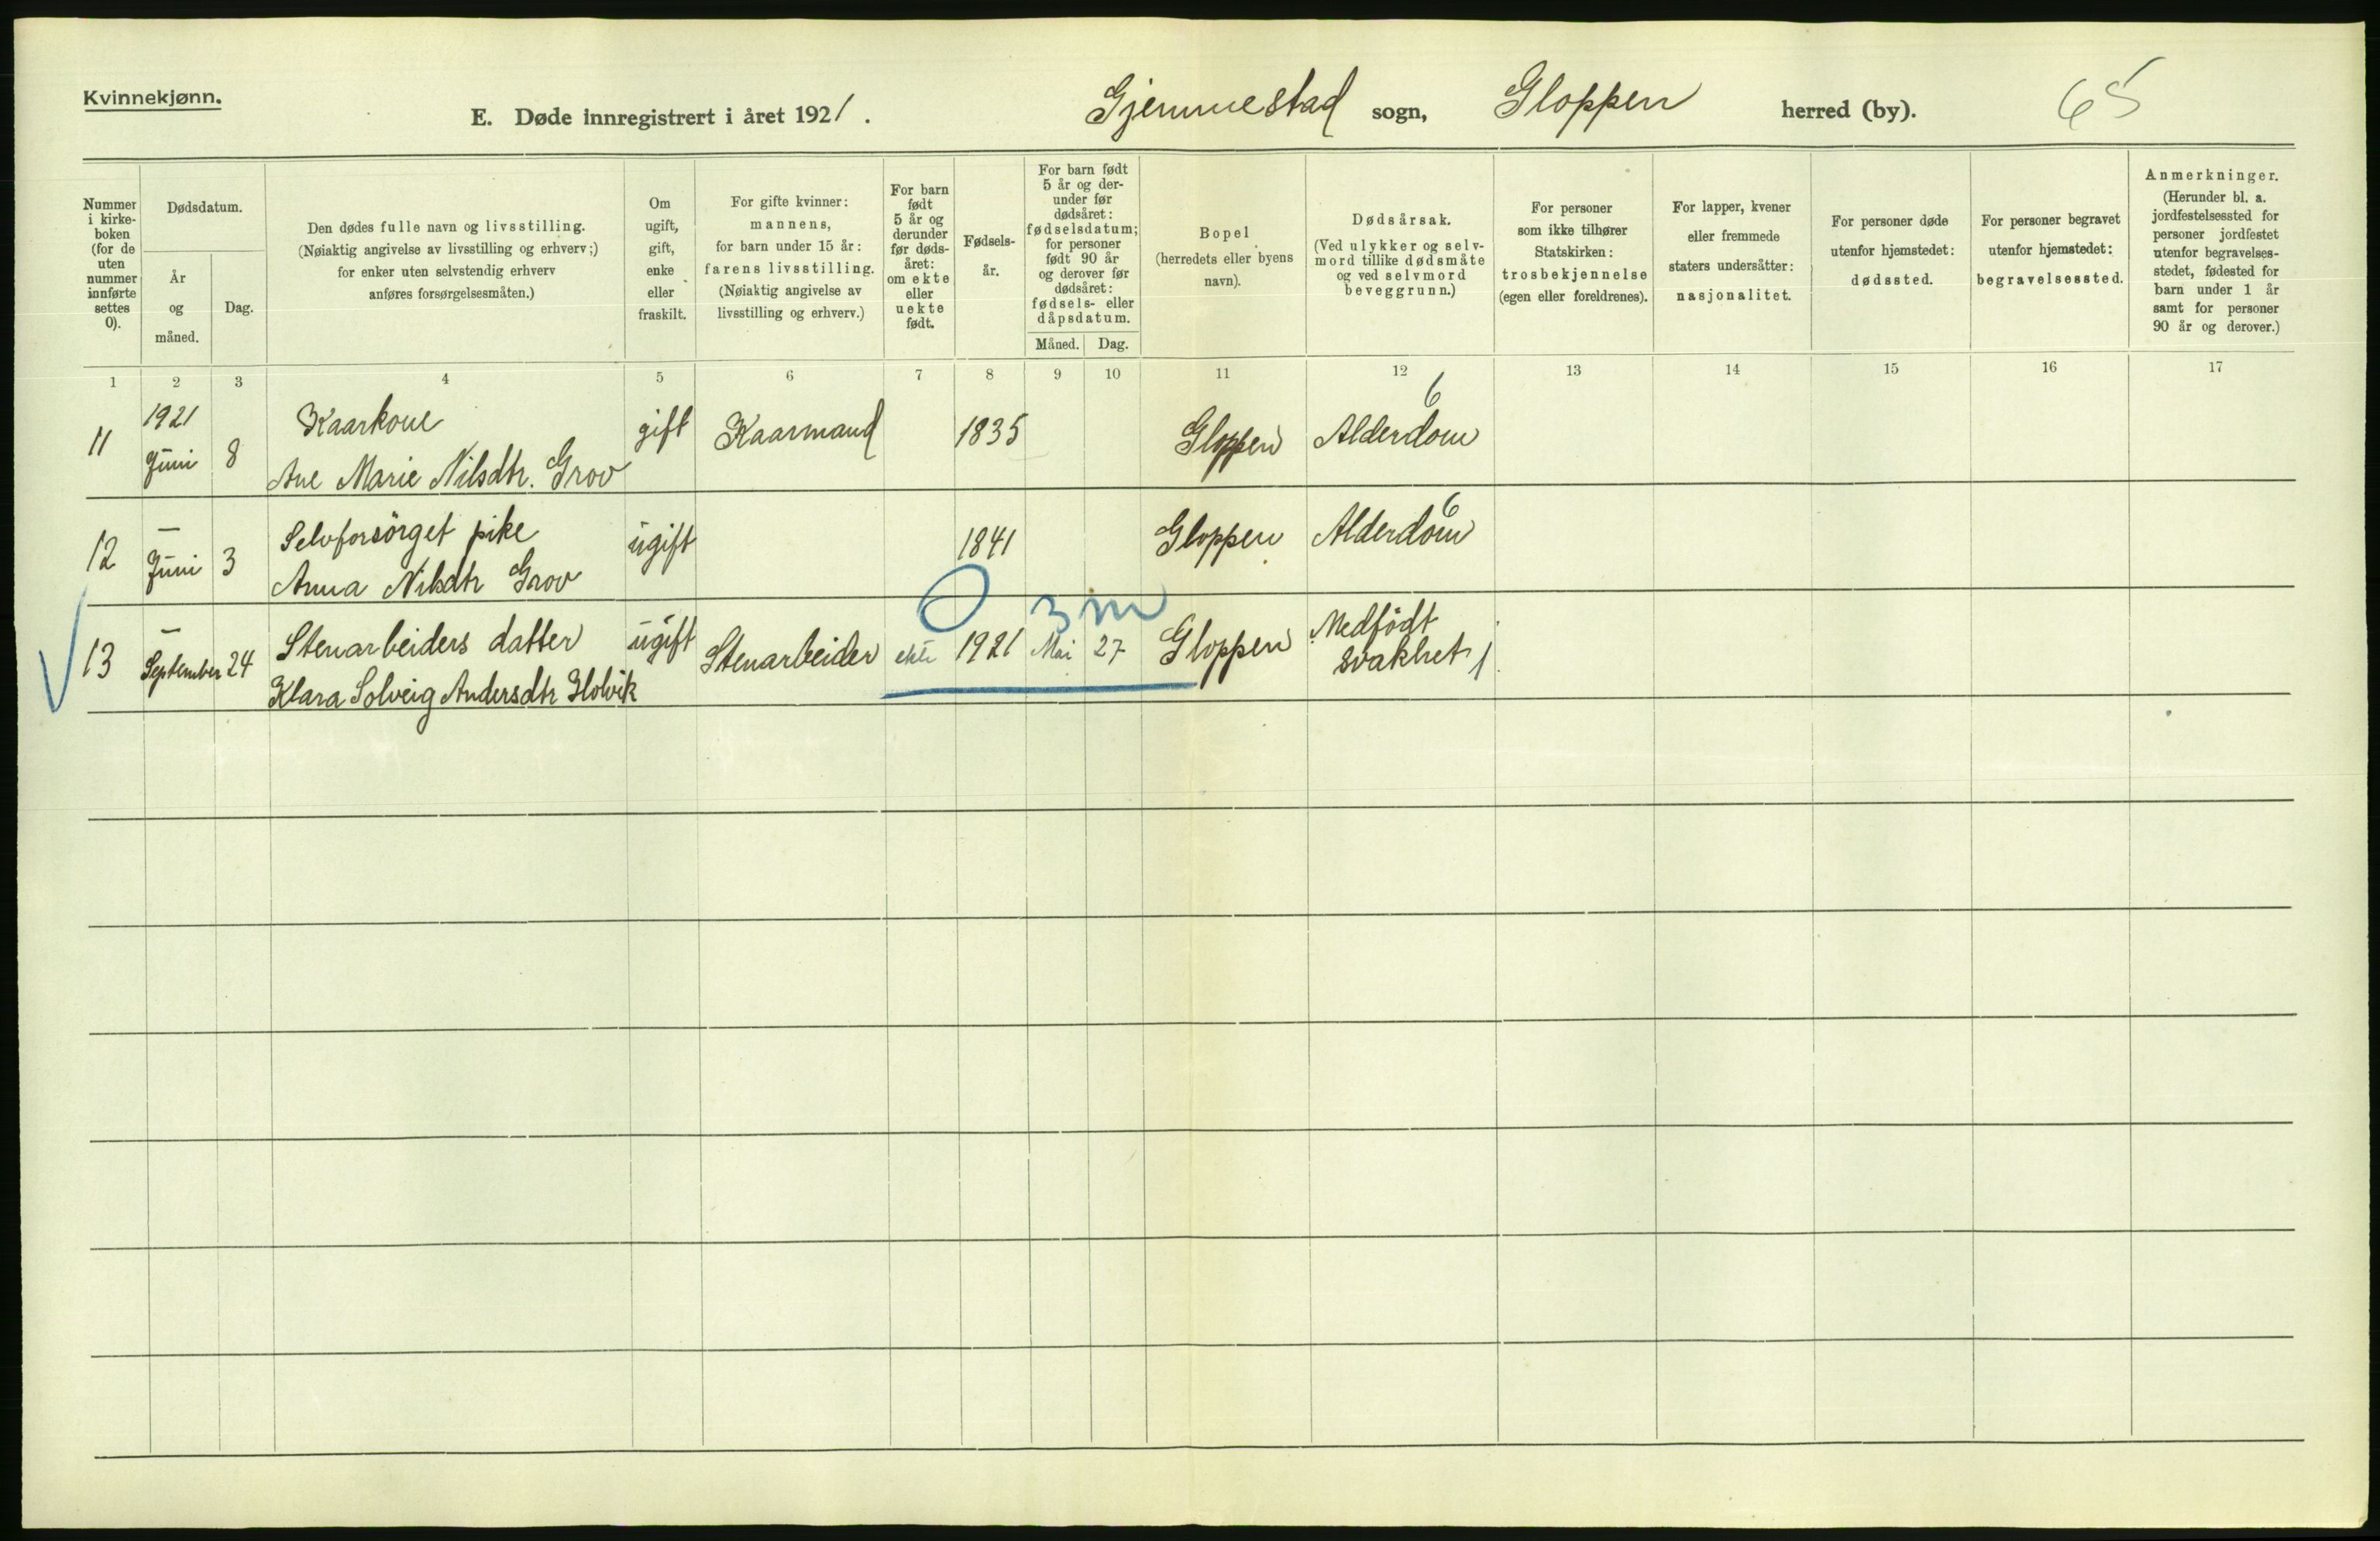 Kvinnekjønn.
E. Døde innregistrert i året 1921.
Gjemmestad sogn, Gloppen herred (by).
65
Nummer
i kirke-
boken
(for de
uten
nummer
innførte
settes
0).
Dødsdatum.
År
og
måned.
Dag.
Den dødes fulle navn og livsstilling.
(Nøiaktig angivelse av livsstilling og erhverv;)
for enker uten selvstendig erhverv
anføres forsørgelsesmåten.)
Om
ugift,
gift,
enke
eller
fraskilt.
For gifte kvinner:
mannens,
for barn under 15 år:
farens livsstilling.
(Nøiaktig angivelse av
livsstilling og erhverv.)
For barn
født
5 år og
derunder
før døds-
året:
om ekte
eller
uekte
født.
Fødsels-
år.
For barn født
5 år og der-
under før
dødsåret:
fødselsdatum;
for personer
født 90 år
og derover før
dødsåret:
fødsels- eller
dåpsdatum.
Måned. Dag.
Bopel
(herredets eller byens
navn).
Dødsårsak.
(Ved ulykker og selv-
mord tillike dødsmåte
og ved selvmord
beveggrunn.)
For personer
som ikke tilhører
Statskirken:
trosbekjennelse
(egen eller foreldrenes).
For lapper, kvener
eller fremmede
staters undersåtter:
nasjonalitet.
For personer døde
utenfor hjemstedet:
dødssted.
For personer begravet
utenfor hjemstedet:
begravelsessted.
Anmerkninger.
(Herunder bl. a.
jordfestelsessted for
personer jordfestet
utenfor begravelses-
stedet, fødested for
barn under 1 år
samt for personer
90 år og derover.)
1 2 3 4 5 6 7 8 9 10 11 12 13 14 15 16 17
11
1921
Juni
8
Kaarkone
Ane Marie Nilsdtr. Grov
gift
Kaarmand
1835
Gloppen
Alderdom
6
12
—
Juni
3
Selvforsörget pike
Anna Nilsdtr Grov
ugift
1841
Gloppen
Alderdom
6
13
—
September
24
Stenarbeiders datter
Klara Solveig Andersdtr Holvik
ugift
Stenarbeider
ekte
0
1921
3 m
Mai
27
Gloppen
Medfödt
svakhet
1